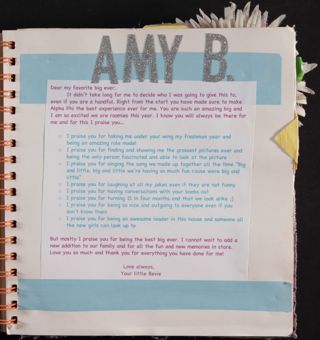 AMY B.
Dear my favorite big ever,
It didn't take long for me to decide who I was going to give this to,
even if you are a handful. Right from the start you have made sure to make
Alpha Phi the best experience ever for me. You are such an amazing big and
I am so excited we are roomies this year. I know you will always be there for
me and for this I praise you...
o I praise you for taking me under your wing my freshman year and
being an amazing role model
o I praise you for finding and showing me the grossest pictures ever and
being the only person fascinated and able to look at the picture
o I praise you for singing the song we made up together all the time "Big
and little, big and little we're having so much fun cause were big and
little"
o I praise you for laughing at all my jokes even if they are not funny
o I praise you for having conversations with your boobs out
o I praise you for turning 21 in four months and that we look alike ;)
o I praise you for being so nice and outgoing to everyone even if you
don't know them
o I praise you for being an awesome leader in this house and someone all
the new girls can look up to
But mostly I praise you for being the best big ever. I cannot wait to add a
new addition to our family and for all the fun and new memories in store.
Love you so much and thank you for everything you have done for me!
Love always,
Your little Bevie